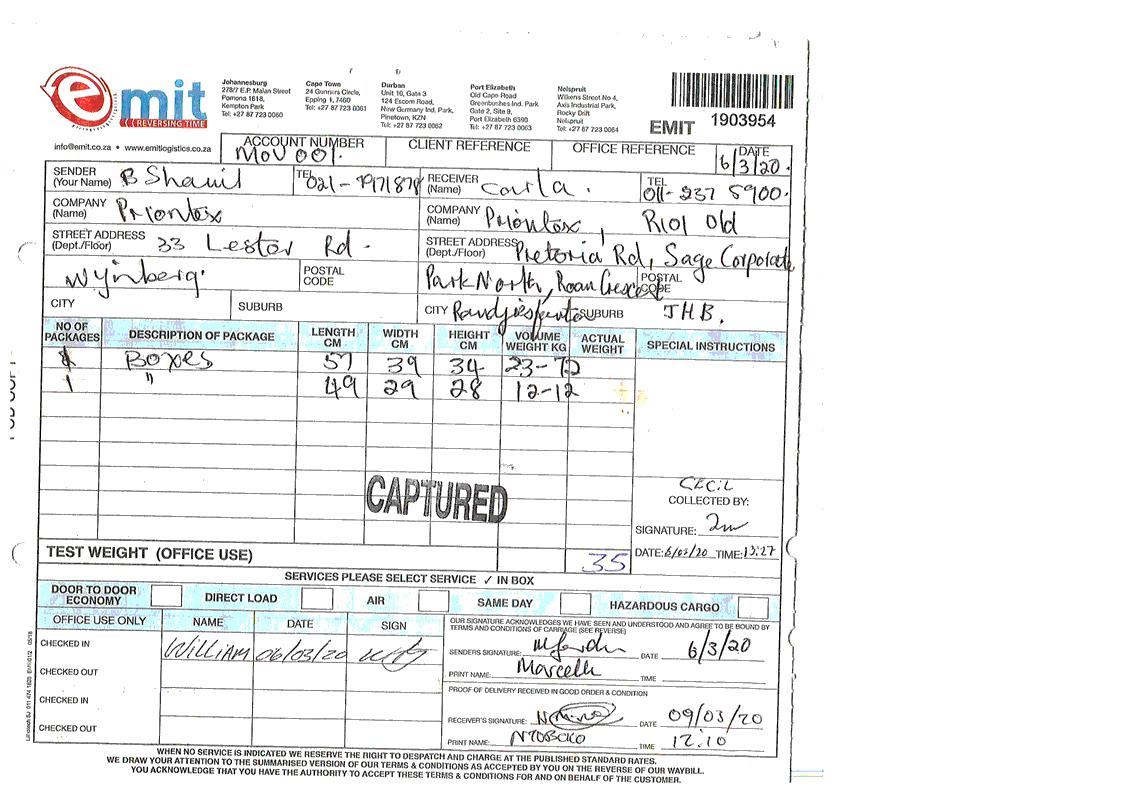 emit
REVERSING TIME
info@emit.co.za • www.emitlogistics.co.za
Johannesburg
278/7 E.P. Malan Street
Pomona 1618,
Kempton Park
Tel: +27 87 723 0060
Cape Town
24 Gunners Circle,
Epping 1, 7460
Tel: +27 87 723 0061
Durban
Unit 10, Gate 3
124 Escom Road,
New Germany Ind. Park,
Pinetown, KZN
Tel: +27 87 723 0062
Port Elizabeth
Old Cape Road
Greenbushes Ind. Park
Gate 2, Site 9,
Port Elizabeth 6390
Tel: +27 87 723 0063
Nelspruit
Wilkens Street No 4,
Axis Industrial Park,
Rocky Drift
Nelspruit
Tel: +27 87 723 0064
EMIT 1903954
ACCOUNT NUMBER MOV001.
CLIENT REFERENCE
OFFICE REFERENCE
DATE 6/3/20.
SENDER (Your Name) B Shamil
TEL 021-
RECEIVER (Name) Carla.
TEL 011-237 5900.
COMPANY (Name) Priontex
COMPANY (Name) Priontex, R101 Old
STREET ADDRESS (Dept./Floor) 33 Lester Rd.
STREET ADDRESS (Dept./Floor) Pretoria Rd, Sage Corporate
Wynberg. POSTAL CODE
Park North, Roan Crescent POSTAL CODE
CITY SUBURB
CITY SUBURB JHB.
NO OF PACKAGES DESCRIPTION OF PACKAGE LENGTH CM WIDTH CM HEIGHT CM VOLUME WEIGHT KG ACTUAL WEIGHT SPECIAL INSTRUCTIONS
1 Boxes 57 39 34 23-72
1 " 49 29 28 12-12
CAPTURED
CECIL
COLLECTED BY:
SIGNATURE:
DATE: 6/03/20 TIME: 13:27
TEST WEIGHT (OFFICE USE) 35
SERVICES PLEASE SELECT SERVICE ✓ IN BOX
DOOR TO DOOR ECONOMY DIRECT LOAD AIR SAME DAY HAZARDOUS CARGO
OFFICE USE ONLY NAME DATE SIGN
CHECKED IN WILLIAM 06/03/20
CHECKED OUT
CHECKED IN
CHECKED OUT
OUR SIGNATURE ACKNOWLEDGES WE HAVE SEEN AND UNDERSTOOD AND AGREE TO BE BOUND BY
TERMS AND CONDITIONS OF CARRIAGE (SEE REVERSE)
SENDERS SIGNATURE: DATE 6/3/20
PRINT NAME: Marcelle TIME
PROOF OF DELIVERY RECEIVED IN GOOD ORDER & CONDITION
RECEIVER'S SIGNATURE: DATE 09/03/20
PRINT NAME: TIME 12:10
WHEN NO SERVICE IS INDICATED WE RESERVE THE RIGHT TO DESPATCH AND CHARGE AT THE PUBLISHED STANDARD RATES.
WE DRAW YOUR ATTENTION TO THE SUMMARISED VERSION OF OUR TERMS & CONDITIONS AS ACCEPTED BY YOU ON THE REVERSE OF OUR WAYBILL.
YOU ACKNOWLEDGE THAT YOU HAVE THE AUTHORITY TO ACCEPT THESE TERMS & CONDITIONS FOR AND ON BEHALF OF THE CUSTOMER.